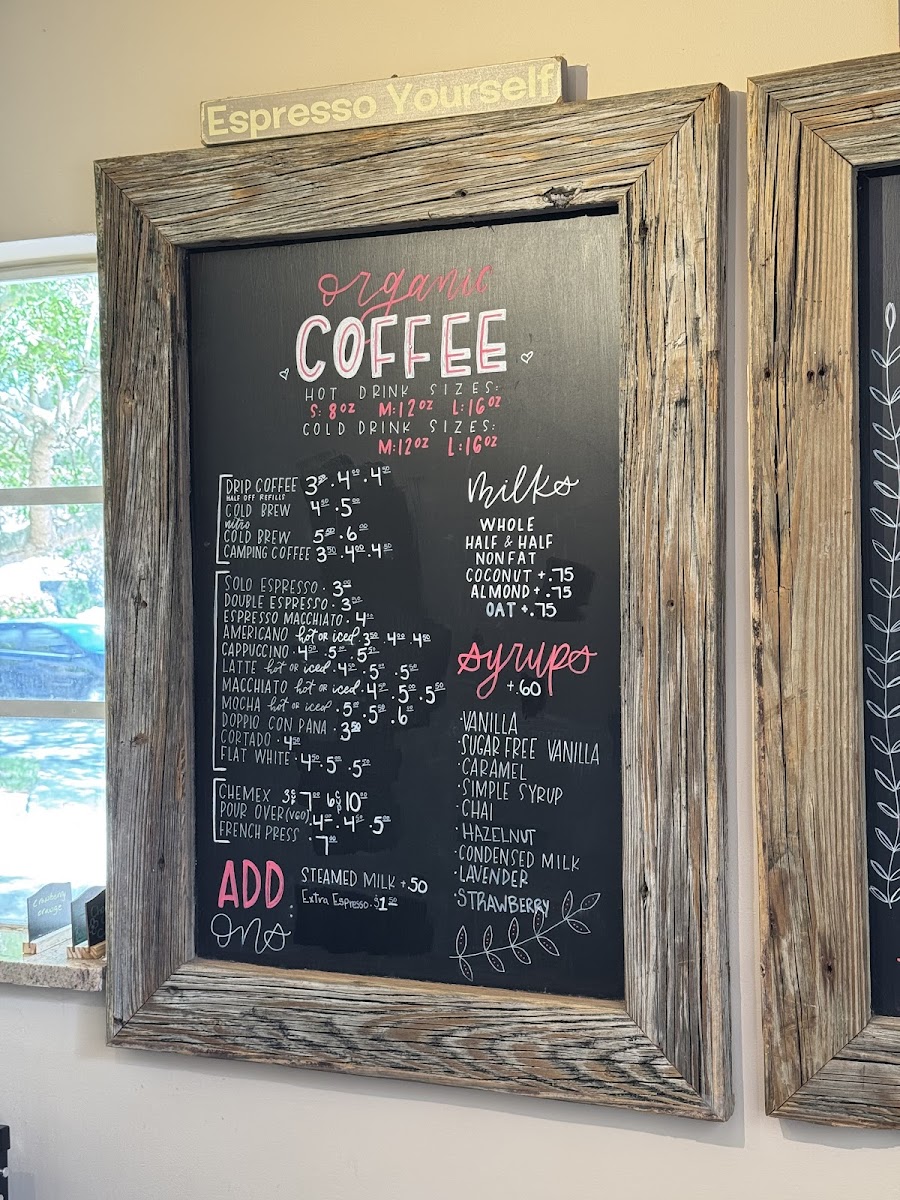 Espresso Yourself
organic
COFFEE
HOT DRINK SIZES:
S: 8oz M:12oz L:16oz
COLD DRINK SIZES:
M:12oz L:16oz
DRIP COFFEE 3.50 · 4.00 · 4.50
HALF OFF REFILLS
COLD BREW 4.50 · 5.00
nitro
COLD BREW 5.50 · 6.00
CAMPING COFFEE 3.50 · 4.00 · 4.50
SOLO ESPRESSO · 3.00
DOUBLE ESPRESSO · 3
ESPRESSO MACCHIATO · 4
AMERICANO hot or iced · 3.50 · 4.00 · 4.50
CAPPUCCINO · 4.50 · 5.00 · 5.50
LATTE hot or iced · 4.50 · 5.00 · 5.50
MACCHIATO hot or iced · 4.50 · 5.00 · 5.50
MOCHA hot or iced · 5.00 · 5.50 · 6.00
DOPPIO CON PANA · 3.50
CORTADO · 4.50
FLAT WHITE · 4.50 · 5.00 · 5.50
CHEMEX 3 CUP 7.00 6 CUP 10.00
POUR OVER (V60) · 4.00 · 4.50 · 5.00
FRENCH PRESS · 7.00
ADD
ons
STEAMED MILK +.50
Extra Espresso · $1.50
milks
WHOLE
HALF & HALF
NONFAT
COCONUT +.75
ALMOND +.75
OAT +.75
syrups
+.60
·VANILLA
·SUGAR FREE VANILLA
·CARAMEL
·SIMPLE SYRUP
·CHAI
·HAZELNUT
·CONDENSED MILK
·LAVENDER
·STRAWBERRY
cranberry
orange